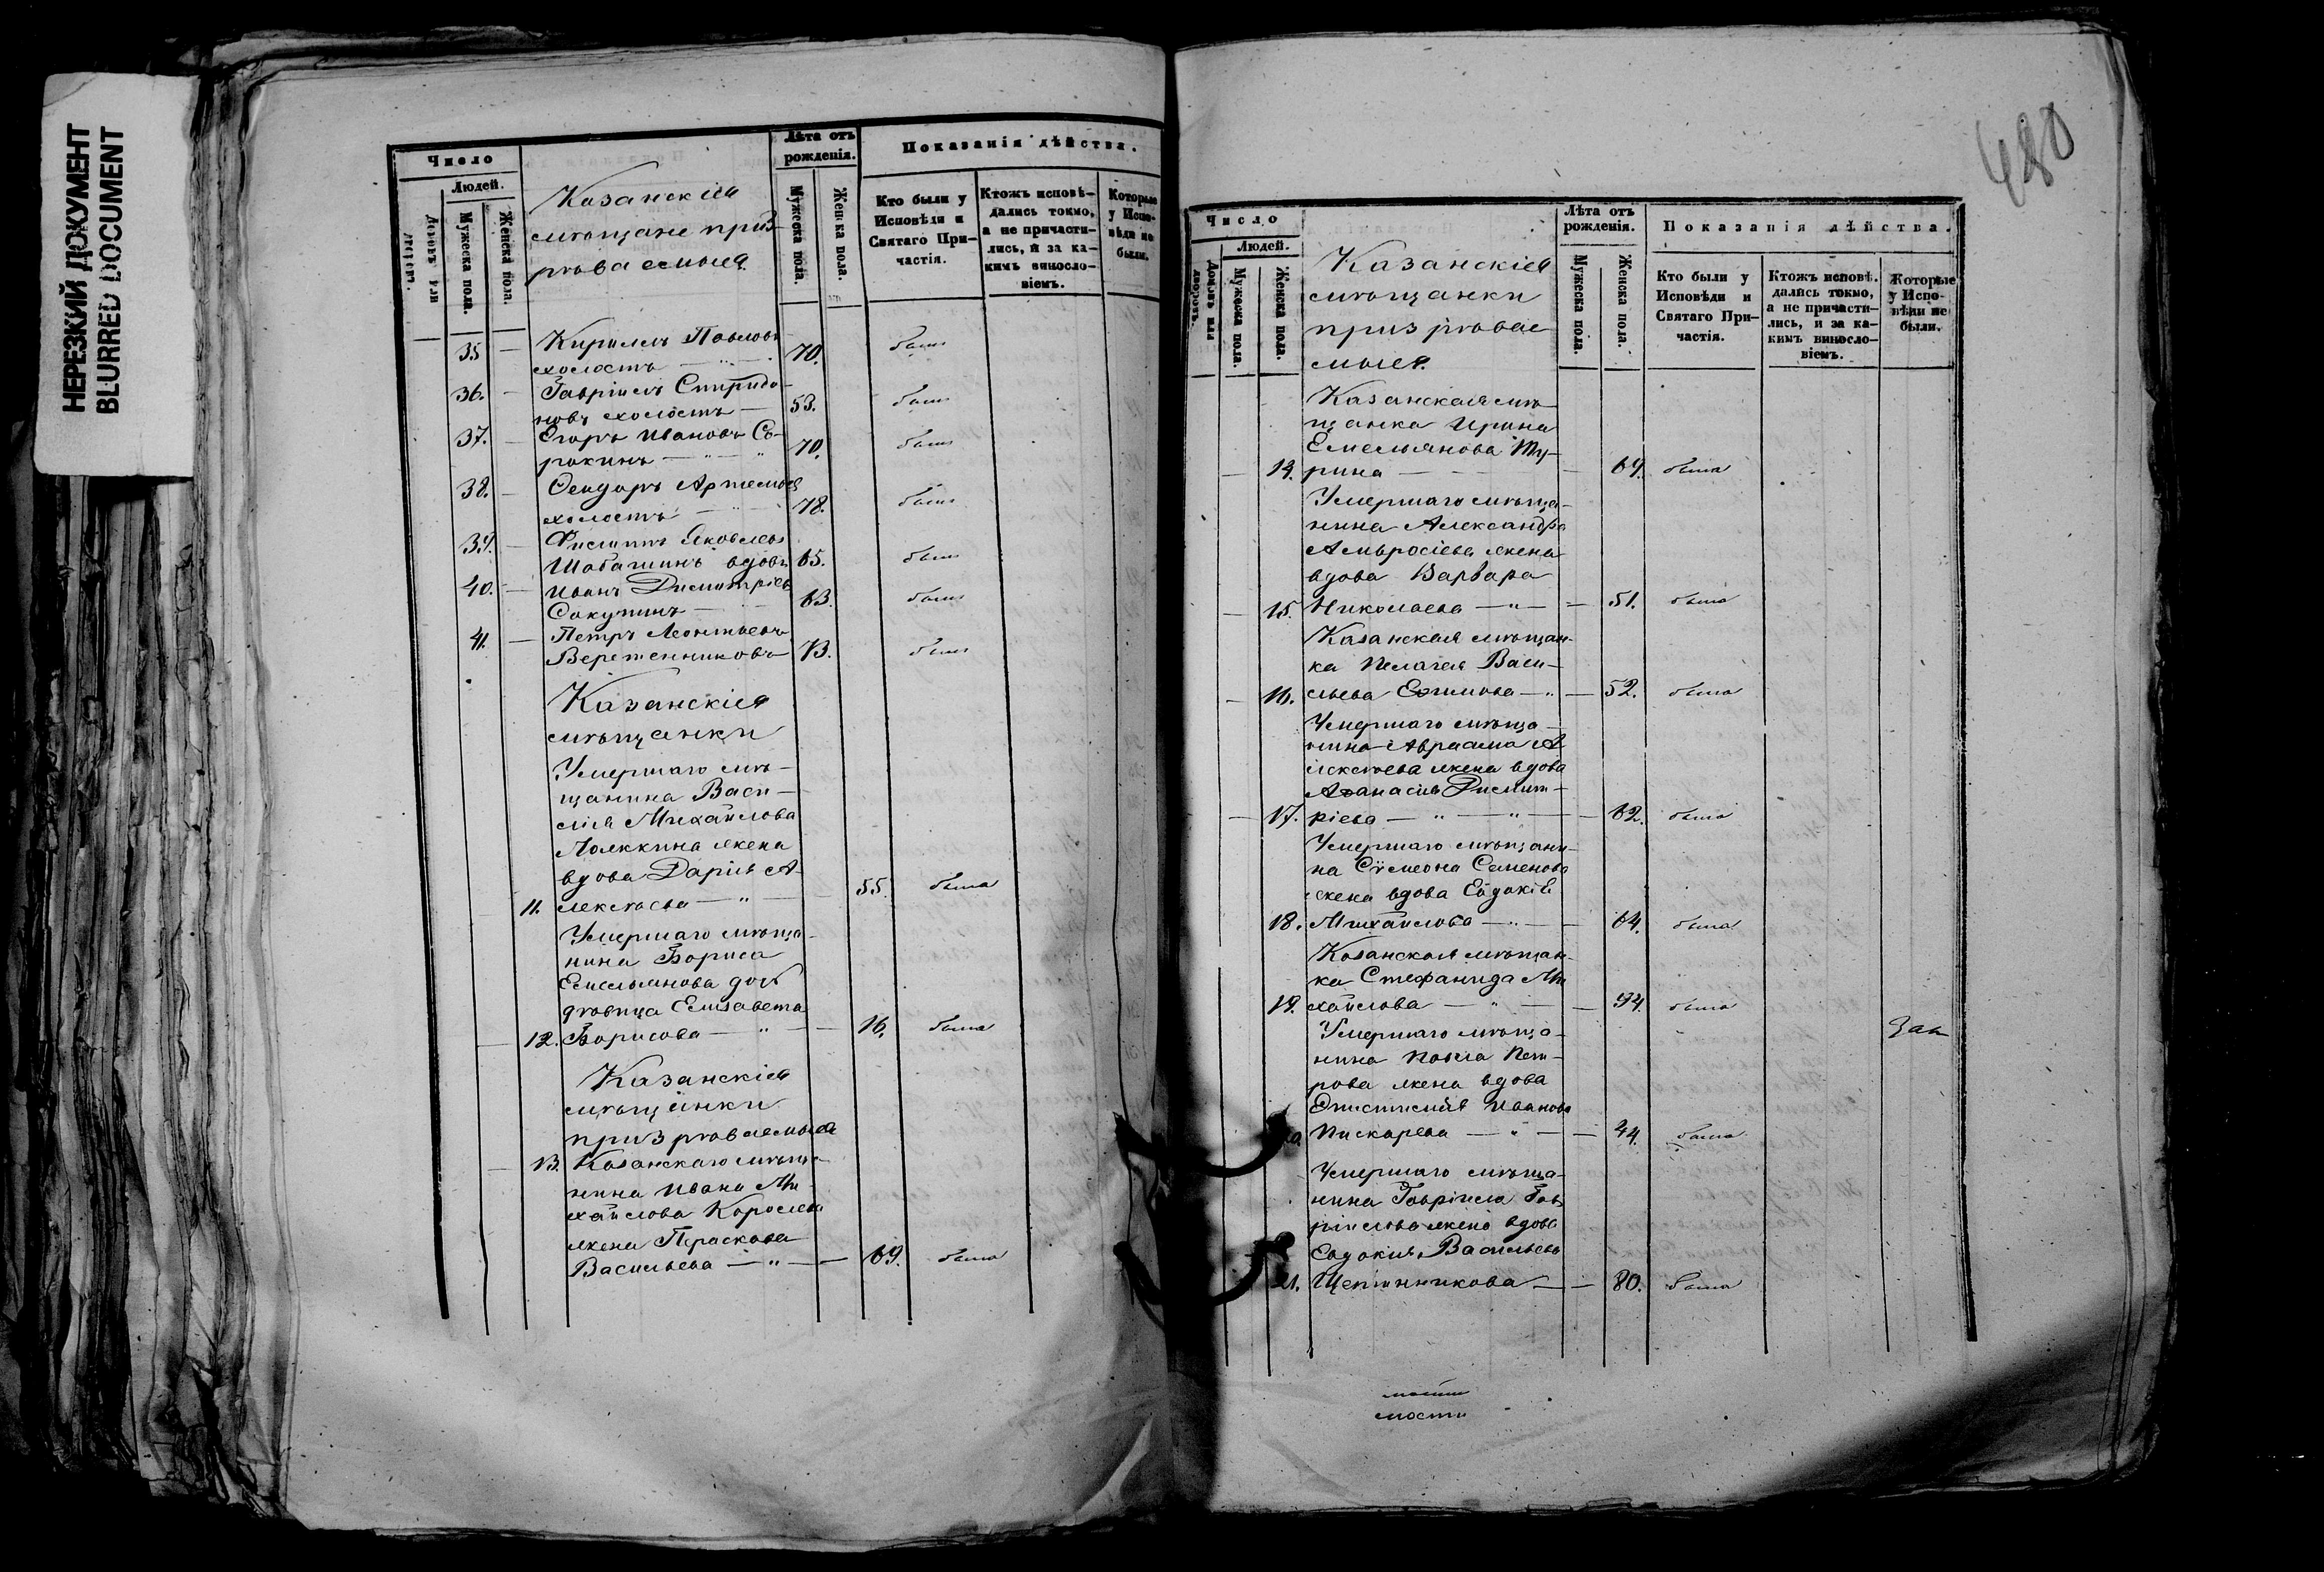 НЕРЕЗКИЙ ДОКУМЕНТ
BLURRED DOCUMENT
Число
Людей.
Мужеска пола.
Женска пола.
Казанскія
мѣщане приз
рѣваемыя
Лѣта отъ
рожденія.
Мужеска пола.
Женска пола.
Показанія дѣйства.
Кто были у
Исповѣди и
Святаго При-
частія.
Ктожъ исповѣ-
дались токмо,
а не причасти-
лись, и за ка-
кимъ виносло-
віемъ.
Которые
у Испо-
вѣди не
были.
35 — Кирилъ Павловъ
холостъ — 70. былъ
36. — Гавріилъ Спиридо-
новъ холостъ — 53. былъ
37. — Егоръ Ивановъ Со-
рокинъ — " — " 70. былъ
38. — Ѳеодоръ Артемьев
холостъ — " 78. былъ
39. — Филиппъ Яковлевъ
Шабашинъ вдовъ 65. былъ
40. — Иванъ Димитріев
Сокунинъ — 63. былъ
41. — Петръ Леонтьевъ
Веретенниковъ 73. былъ
Казанскія
мѣщанки
Умершаго мѣ-
щанина Васи-
лія Михайлова
жена
вдова Дарія А-
11. лексѣева — " — 55. была
Умершаго мѣща-
нина Бориса
Емельянова доч
дѣвица Елисавета
— 12. Борисова — " — 16. была
Казанскія
мѣщанки
призрѣваемыя
— 13. Казанскаго мѣща-
нина Ивана Ми-
хайлова Королева
жена Параскова
Васильева — " — 69. была
480
Число
Людей.
Мужеска пола.
Женска пола.
Казанскія
мѣщанки
призрѣвае
мыя.
Лѣта отъ
рожденія.
Мужеска пола.
Женска пола.
Показанія дѣйства.
Кто были у
Исповѣди и
Святаго При-
частія.
Ктожъ исповѣ-
дались токмо,
а не причасти-
лись, и за ка-
кимъ виносло-
віемъ.
Которые
у Испо-
вѣди не
были.
Казанская мѣ-
щанка Ирина
Емельянова Тю-
— 14. рина — — 69. была
Умершаго мѣща-
нина Александра
Амвросіева жена
вдова Варвара
— 15. Николаева — " — 51. была
Казанская мѣщан-
ка Пелагея Васи-
— 16. льева Ефимова — " — 52. была
Умершаго мѣща-
нина Авраама А
лексѣева жена вдова
Аѳанасія Димит-
— 17. ріева — " — " — 62. была
Умершаго мѣщани-
на Сѵмеона Семенова
жена вдова Евдокія
18. Михайлова — " — 64. была
Казанская мѣщан-
ка Стефанида Ми
19. хайлова — " — 94. была
Умершаго мѣща-
нина Павла Пет-
рова жена вдова
Епистимія Иванова
Пискарева — " — 44. была
Умершаго мѣща-
нина Гавріила Гав
ріилова жена вдова
Евдокія Васильева
21. Щетинникова — — 80. была
мости